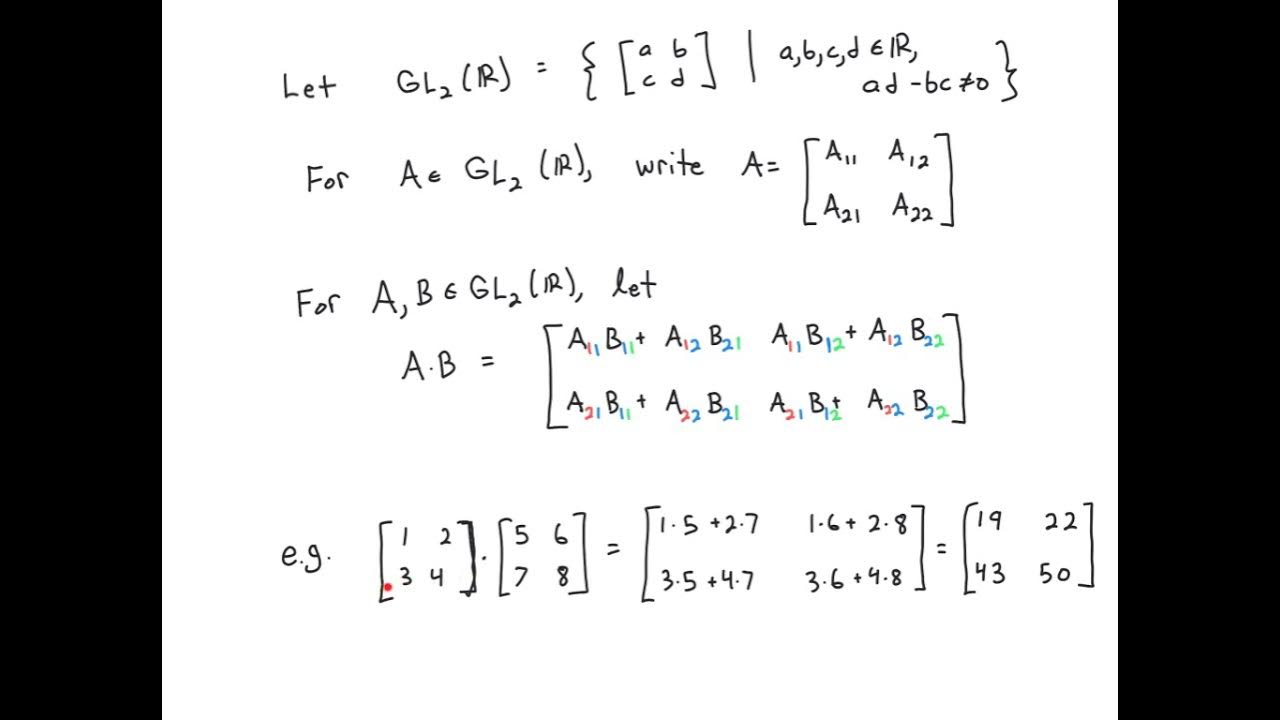 Let GL₂(ℝ) = { [a b; c d] | a,b,c,d ∈ ℝ, ad - bc ≠ 0 }
For A ∈ GL₂(ℝ), write A = [A₁₁ A₁₂; A₂₁ A₂₂]
For A, B ∈ GL₂(ℝ), let
A·B = [A₁₁B₁₁ + A₁₂B₂₁ A₁₁B₁₂ + A₁₂B₂₂; A₂₁B₁₁ + A₂₂B₂₁ A₂₁B₁₂ + A₂₂B₂₂]
e.g. [1 2; 3 4] · [5 6; 7 8] = [1·5 + 2·7 1·6 + 2·8; 3·5 + 4·7 3·6 + 4·8] = [19 22; 43 50]